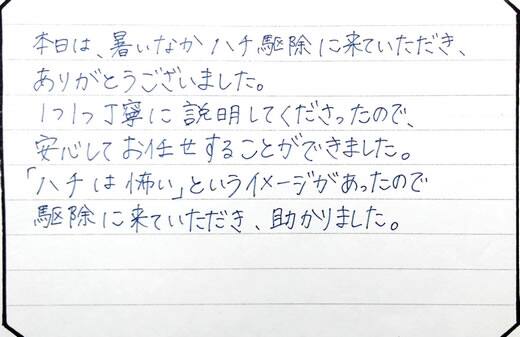 本日は、暑いなかハチ駆除に来ていただき、
ありがとうございました。
1つ1つ丁寧に説明してくださったので、
安心してお任せすることができました。
「ハチは怖い」というイメージがあったので
駆除に来ていただき、助かりました。